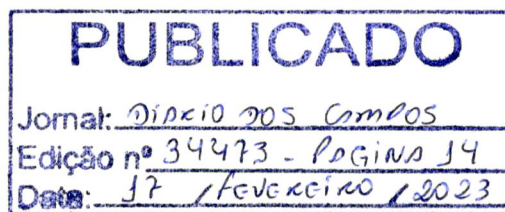 PUBLICADO
Jornal: DIÁRIO DOS CAMPOS
Edição nº 34473 - PÁGINA 14
Data: 17 / FEVEREIRO / 2023